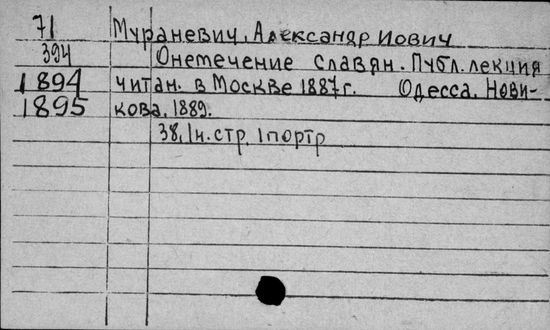 71 Мураневич, Александр Иович
394 Онемечение славян. Публ. лекция
1894 читан. в Москве 1887 г. Одесса, Нови-
1895 кова, 1889.
38, 1 н. стр. 1 портр